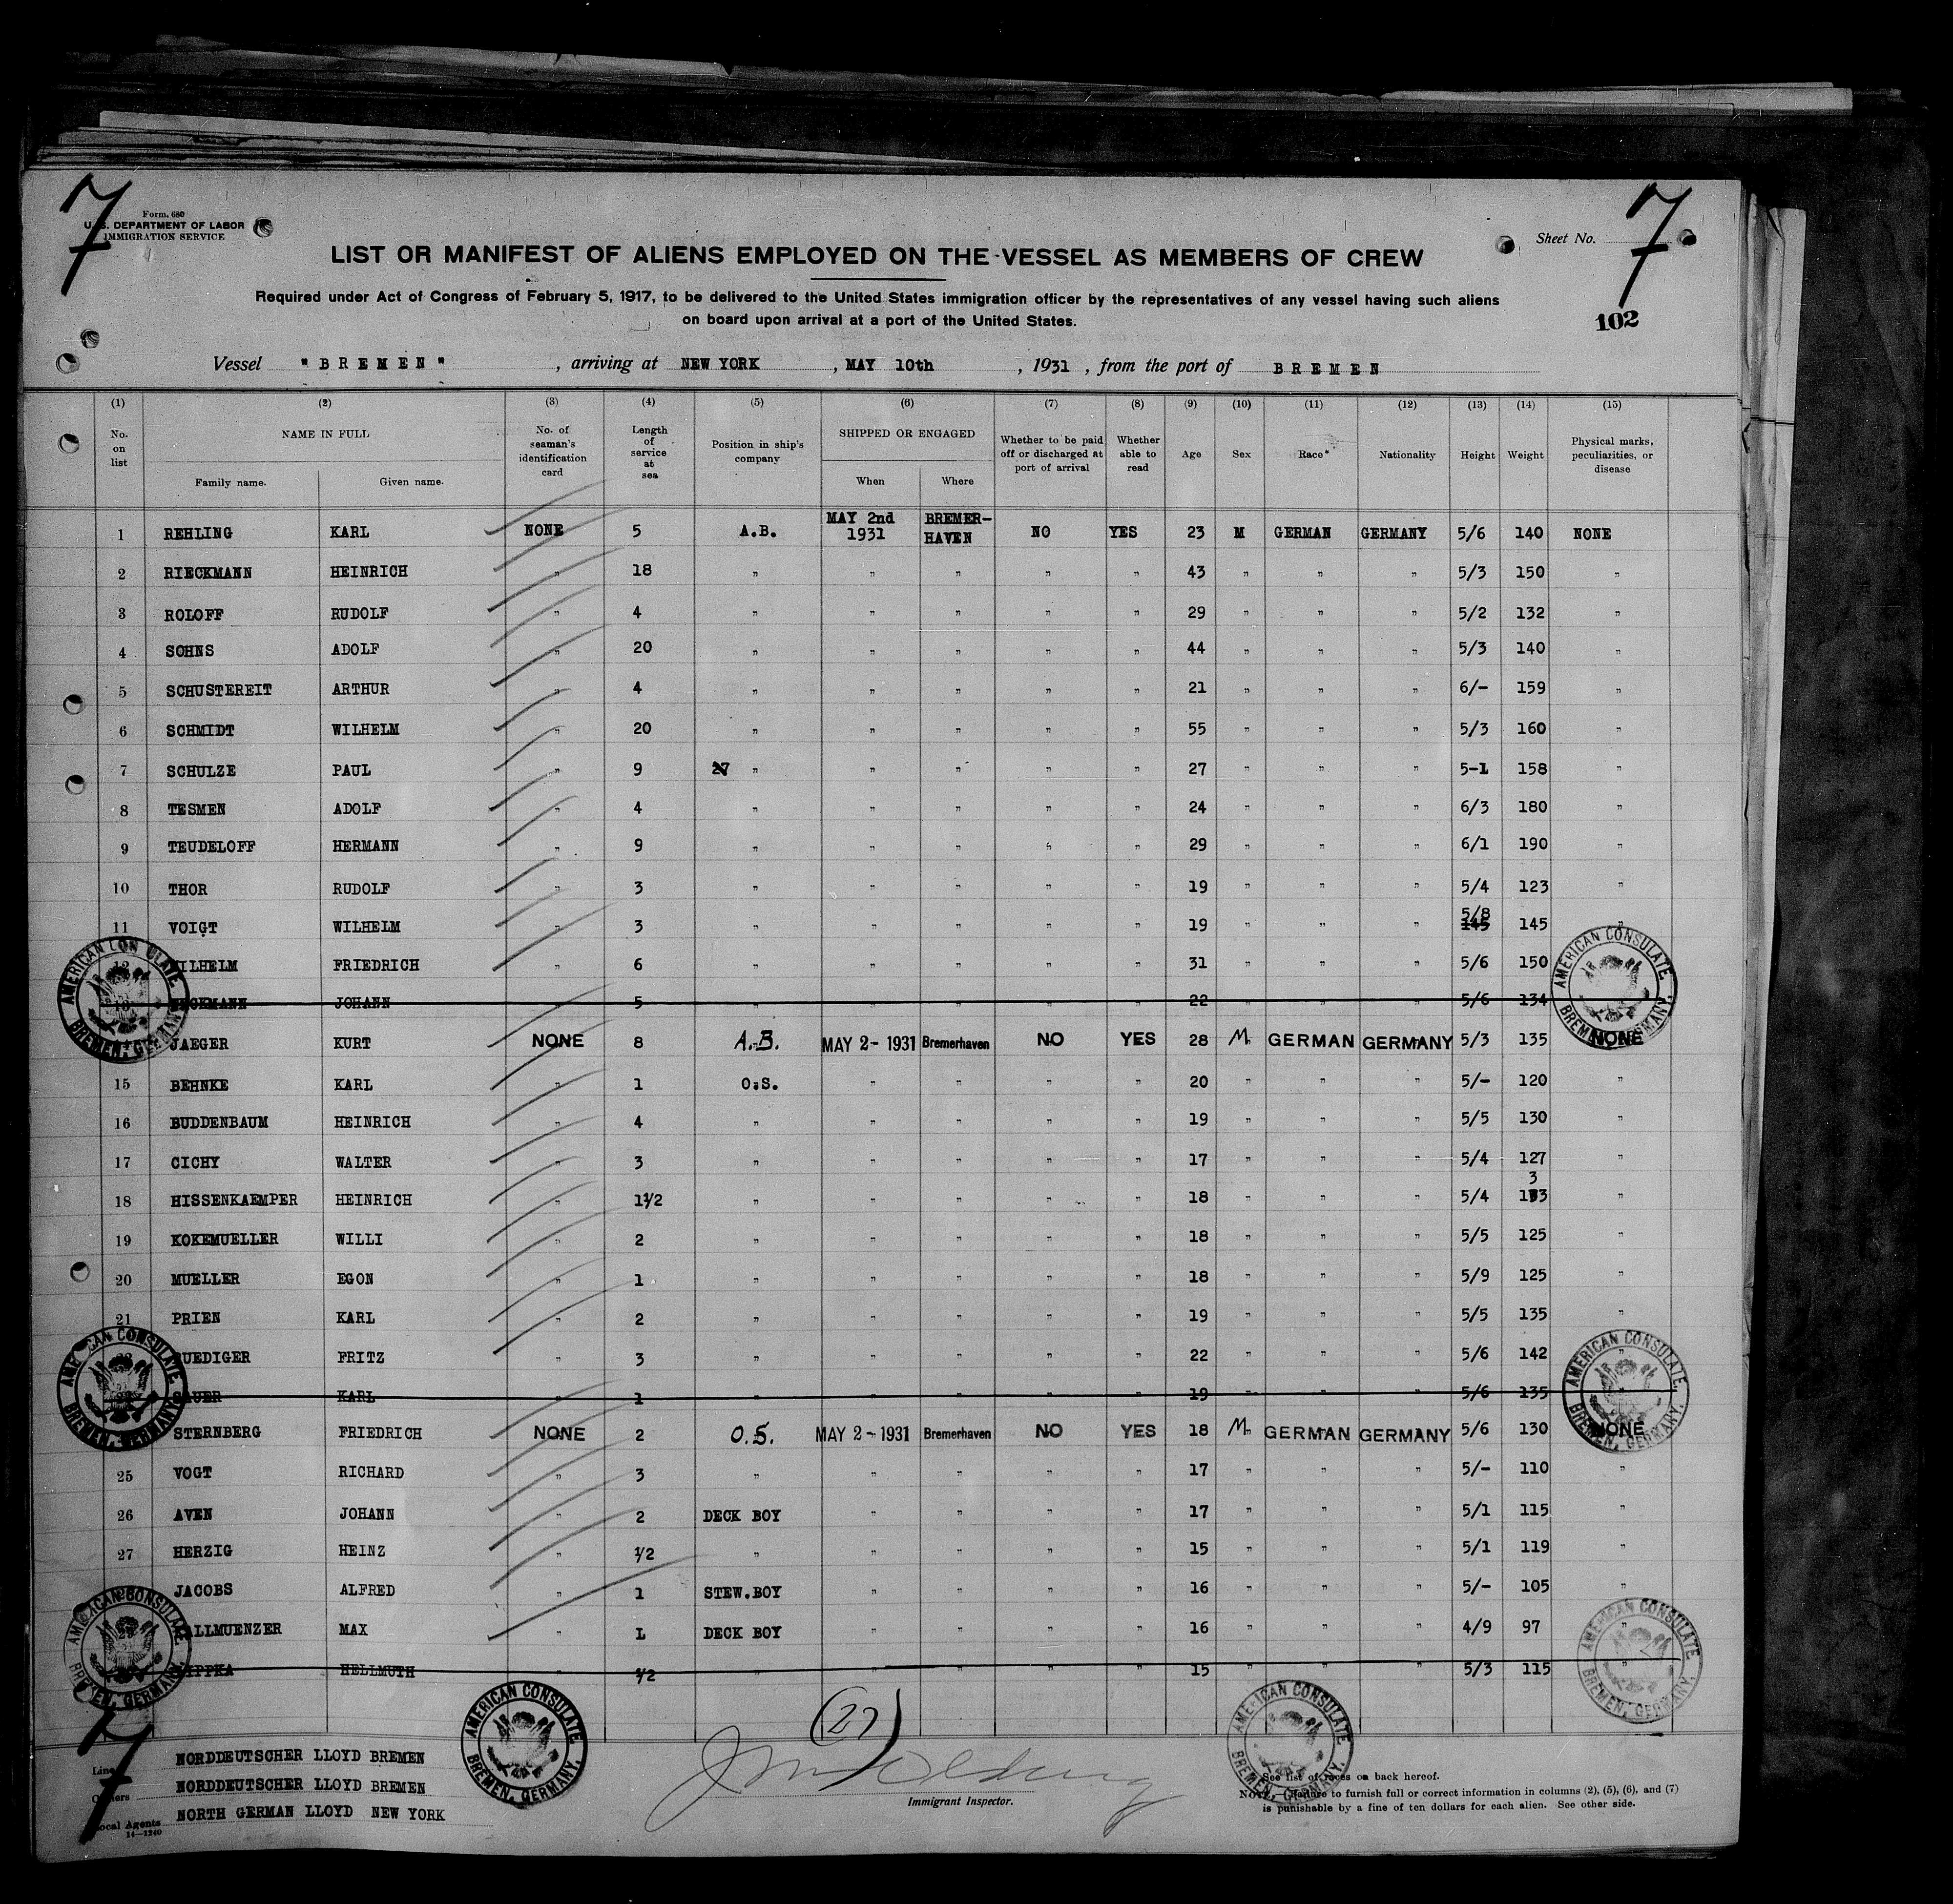 7
7
Form. 680
U. S. DEPARTMENT OF LABOR
IMMIGRATION SERVICE
Sheet No.
LIST OR MANIFEST OF ALIENS EMPLOYED ON THE VESSEL AS MEMBERS OF CREW
Required under Act of Congress of February 5, 1917, to be delivered to the United States immigration officer by the representatives of any vessel having such aliens
on board upon arrival at a port of the United States.
102
Vessel "BREMEN" , arriving at NEW YORK , MAY 10th , 1931 , from the port of BREMEN
(1) (2) (3) (4) (5) (6) (7) (8) (9) (10) (11) (12) (13) (14) (15)
No. on list NAME IN FULL Family name. Given name. No. of seaman's identification card Length of service at sea Position in ship's company SHIPPED OR ENGAGED When Where Whether to be paid off or discharged at port of arrival Whether able to read Age Sex Race* Nationality Height Weight Physical marks, peculiarities, or disease
1 REHLING KARL NONE 5 A.B. MAY 2nd 1931 BREMER-HAVEN NO YES 23 M GERMAN GERMANY 5/6 140 NONE
2 RIECKMANN HEINRICH " 18 " " " " " 43 " " " 5/3 150 "
3 ROLOFF RUDOLF " 4 " " " " " 29 " " " 5/2 132 "
4 SOHNS ADOLF " 20 " " " " " 44 " " " 5/3 140 "
5 SCHUSTEREIT ARTHUR " 4 " " " " " 21 " " " 6/- 159 "
6 SCHMIDT WILHELM " 20 " " " " " 55 " " " 5/3 160 "
7 SCHULZE PAUL " 9 27 " " " " " 27 " " " 5-1 158 "
8 TESMEN ADOLF " 4 " " " " " 24 " " " 6/3 180 "
9 TEUDELOFF HERMANN " 9 " " " " " 29 " " " 6/1 190 "
10 THOR RUDOLF " 3 " " " " " 19 " " " 5/4 123 "
11 VOIGT WILHELM " 3 " " " " " 19 " " " 5/8 145 145 "
12 WILHELM FRIEDRICH " 6 " " " " " 31 " " " 5/6 150
JOHANN 5 " " " " " 22 " " " 5/6 134
JAEGER KURT NONE 8 A.B. MAY 2- 1931 Bremerhaven NO YES 28 M. GERMAN GERMANY 5/3 135 NONE
15 BEHNKE KARL " 1 O.S. " " " " 20 " " " 5/- 120 "
16 BUDDENBAUM HEINRICH " 4 " " " " " 19 " " " 5/5 130 "
17 CICHY WALTER " 3 " " " " " 17 " " " 5/4 127 "
18 HISSENKAEMPER HEINRICH " 1 1/2 " " " " " 18 " " " 5/4 133 3 "
19 KOKEMUELLER WILLI " 2 " " " " " 18 " " " 5/5 125 "
20 MUELLER EGON " 1 " " " " " 18 " " " 5/9 125 "
21 PRIEN KARL " 2 " " " " " 19 " " " 5/5 135 "
RUEDIGER FRITZ " 3 " " " " " 22 " " " 5/6 142 "
KARL " 1 " " " " " 19 " " " 5/6 135
STERNBERG FRIEDRICH NONE 2 O.S. MAY 2- 1931 Bremerhaven NO YES 18 M. GERMAN GERMANY 5/6 130 NONE
25 VOGT RICHARD " 3 " " " " " 17 " " " 5/- 110 "
26 AVEN JOHANN " 2 DECK BOY " " " " 17 " " " 5/1 115 "
27 HERZIG HEINZ " 1/2 " " " " " 15 " " " 5/1 119 "
JACOBS ALFRED " 1 STEW.BOY " " " " 16 " " " 5/- 105 "
MAX " L DECK BOY " " " " 16 " " " 4/9 97 "
HELLMUTH 1/2 " " " " " 15 " " " 5/3 115 "
AMERICAN CONSULATE BREMEN, GERMANY.
AMERICAN CONSULATE BREMEN, GERMANY.
AMERICAN CONSULATE BREMEN, GERMANY.
AMERICAN CONSULATE BREMEN, GERMANY.
AMERICAN CONSULATE BREMEN, GERMANY.
AMERICAN CONSULATE BREMEN, GERMANY.
AMERICAN CONSULATE BREMEN, GERMANY.
AMERICAN CONSULATE BREMEN, GERMANY.
(27)
7
Line NORDDEUTSCHER LLOYD BREMEN
Owners NORDDEUTSCHER LLOYD BREMEN
Local Agents NORTH GERMAN LLOYD NEW YORK
14—1240
Immigrant Inspector.
See list of races on back hereof.
NOTE.—Failure to furnish full or correct information in columns (2), (5), (6), and (7)
is punishable by a fine of ten dollars for each alien. See other side.